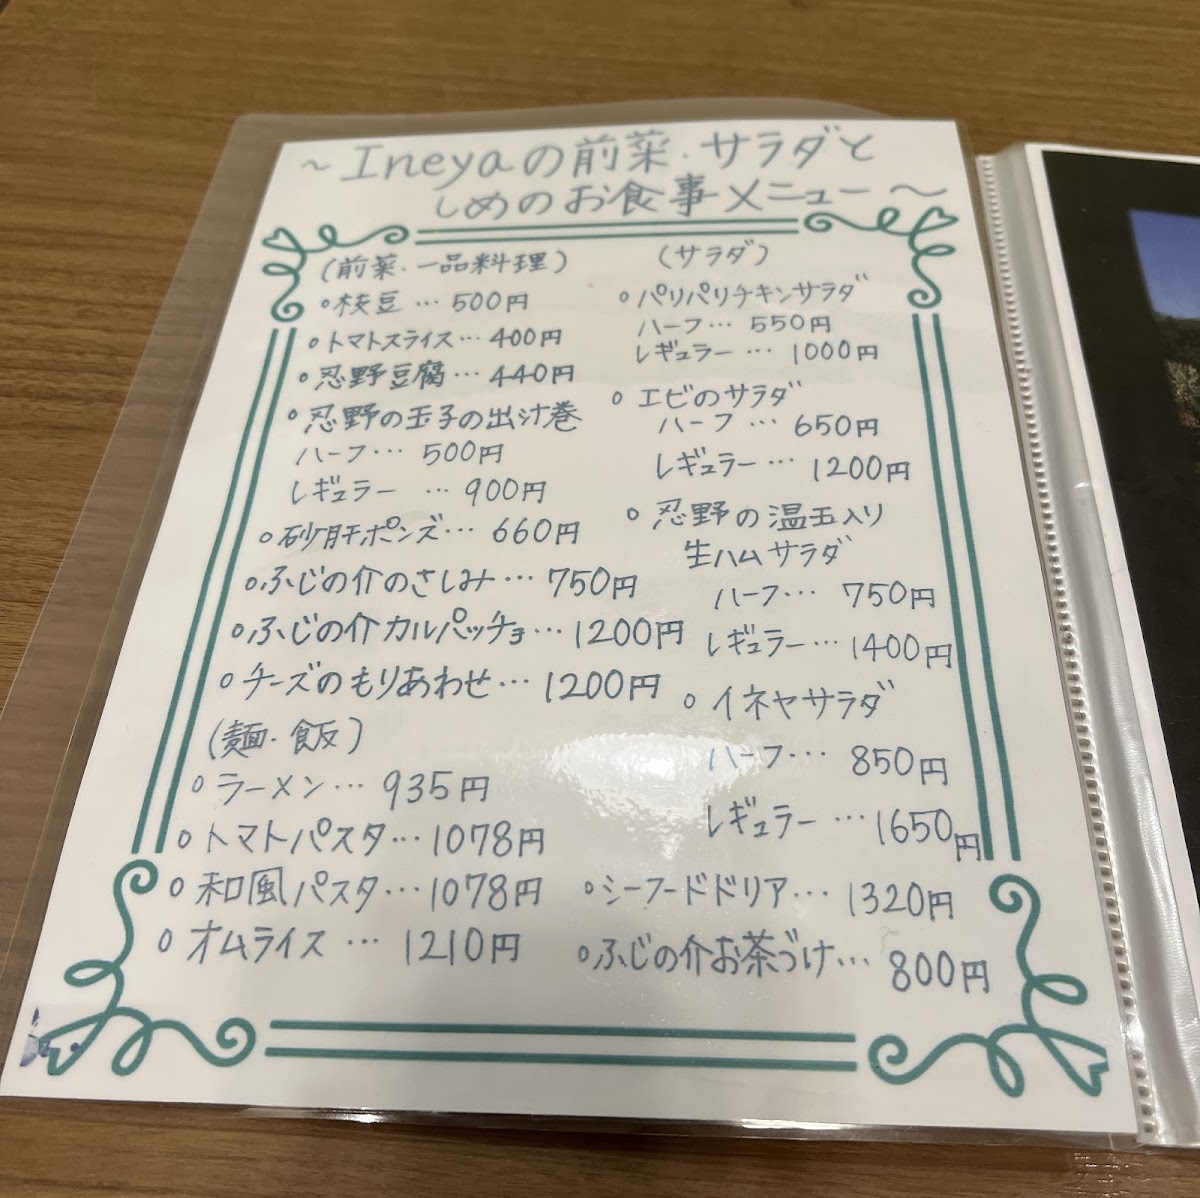 ～Ineyaの前菜・サラダと
しめのお食事メニュー～
(前菜・一品料理)
○枝豆…500円
○トマトスライス…400円
○忍野豆腐…440円
○忍野の玉子の出汁巻
ハーフ…500円
レギュラー…900円
○砂肝ポンズ…660円
○ふじの介のさしみ…750円
○ふじの介カルパッチョ…1200円
○チーズのもりあわせ…1200円
(麺・飯)
○ラーメン…935円
○トマトパスタ…1078円
○和風パスタ…1078円
○オムライス…1210円
(サラダ)
○パリパリチキンサラダ
ハーフ…550円
レギュラー…1000円
○エビのサラダ
ハーフ…650円
レギュラー…1200円
○忍野の温玉入り
生ハムサラダ
ハーフ…750円
レギュラー…1400円
○イネヤサラダ
ハーフ…850円
レギュラー…1650円
○シーフードドリア…1320円
○ふじの介お茶づけ…800円